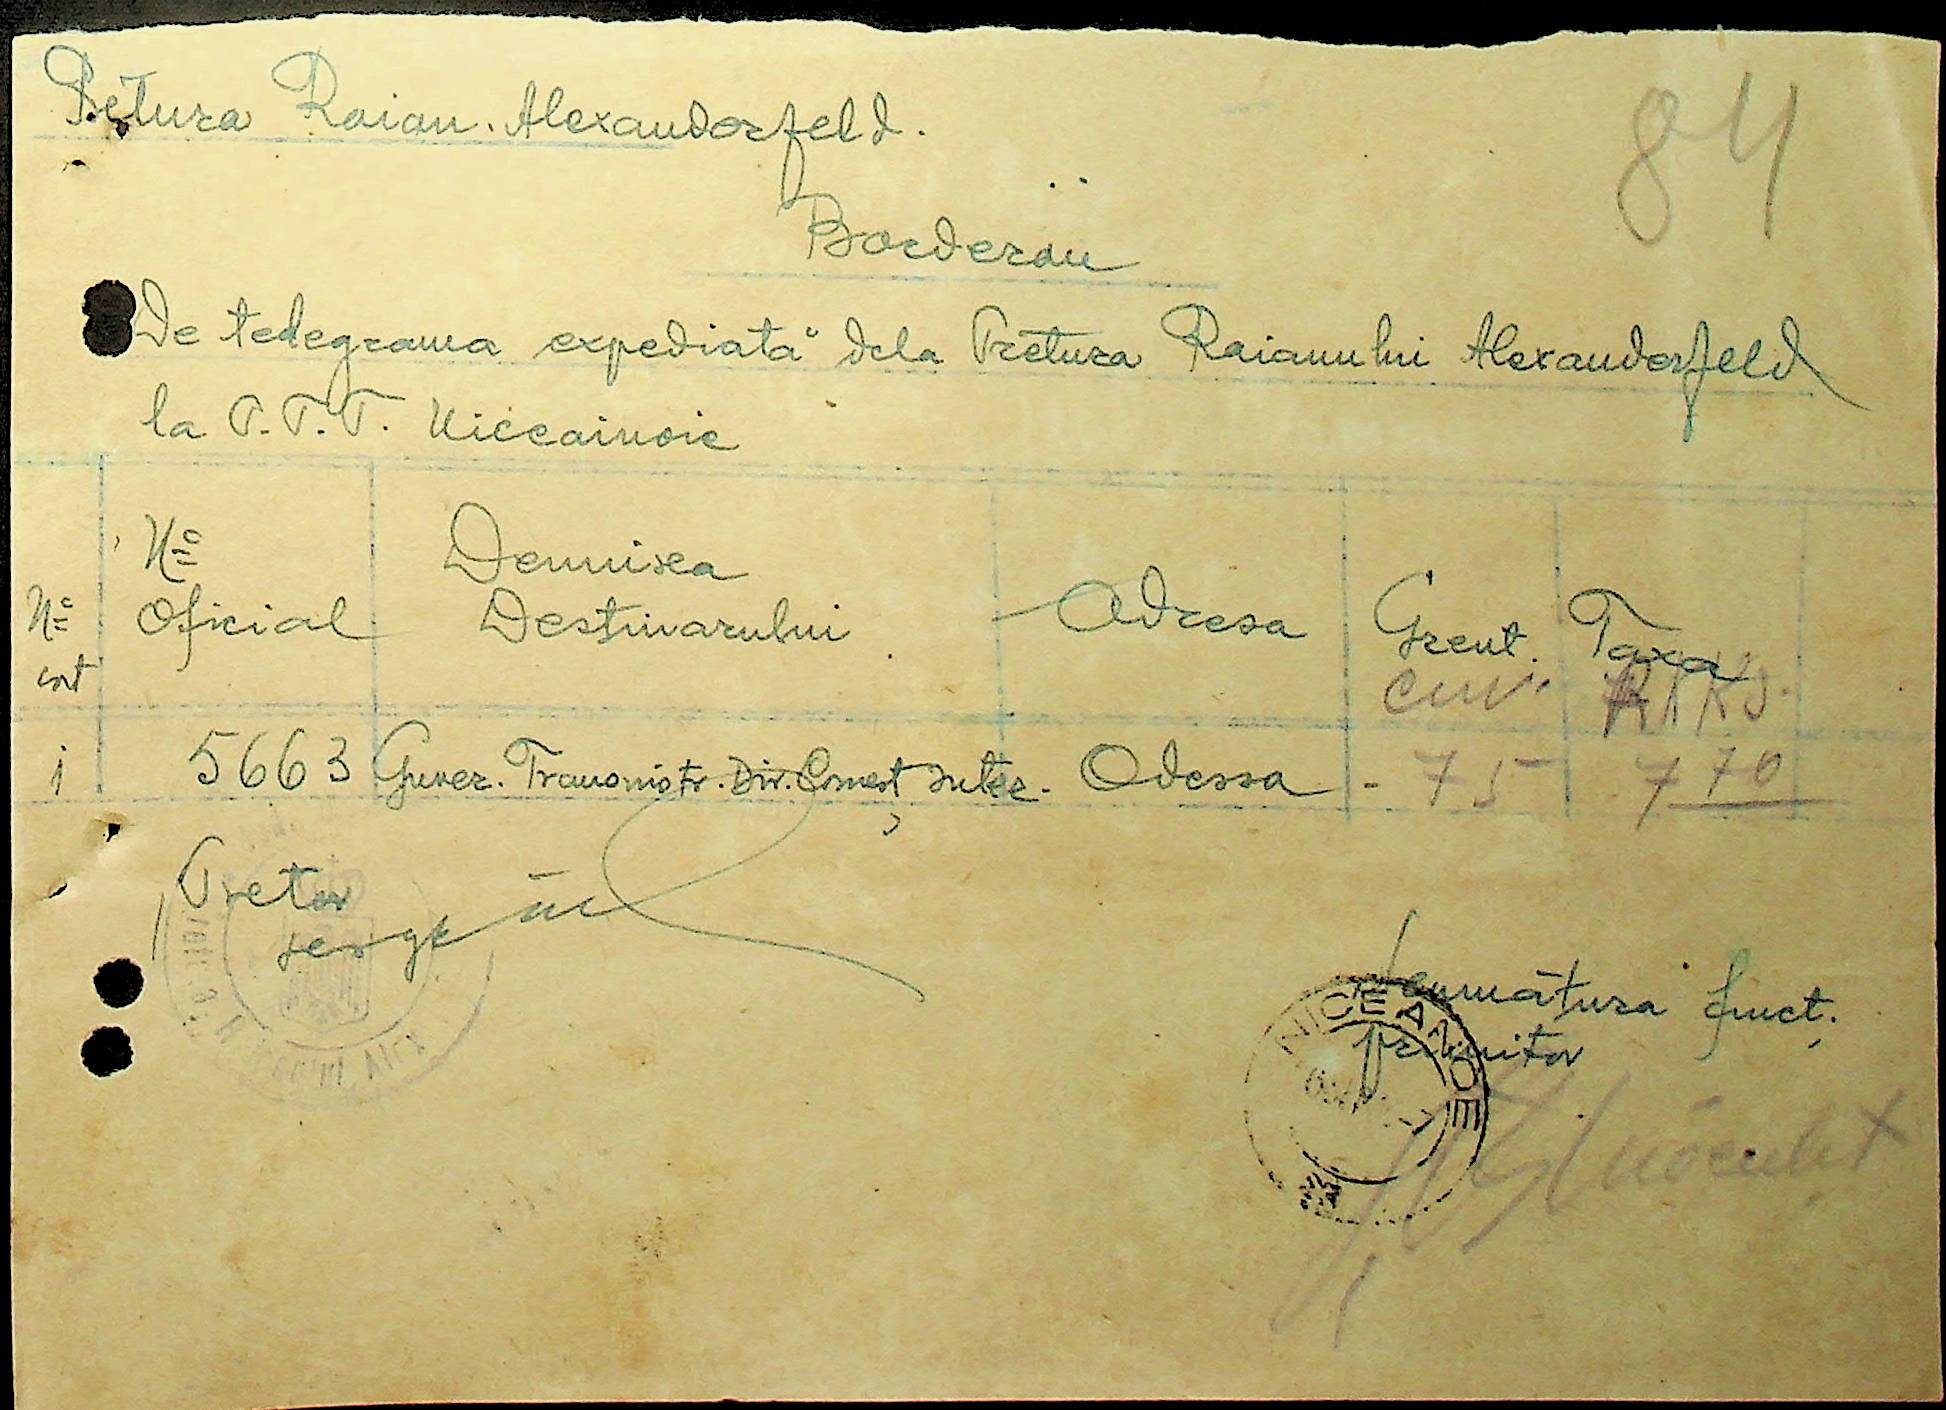 Pretura Raion. Alexandorfeld.
84
Borderoŭ
De telegrama expediată dela Pretura Raionului Alexandorfeld
la P.T.T. Niceainoie
No crt
No Oficial
Denumirea Destinarului
Adresa
Greut. cuv.
Taxa RKKS.
1 5663 Guver. Transnistr. Dir. Comerț Odessa - 75 7 70
Pretor
Semnătura funct.
primitor
NICEANOE